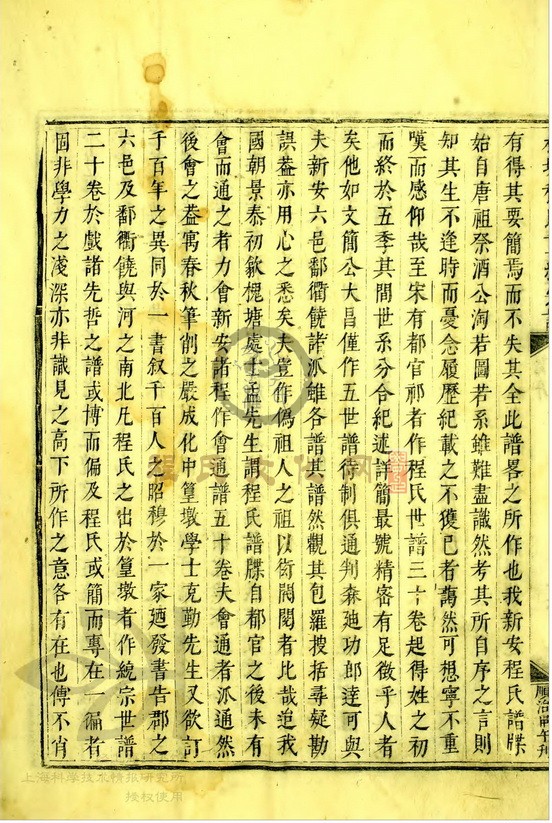 有得其要簡焉而不失其全此譜畧之所作也我新安程氏譜牒
始自唐祖祭酒公淘若圖若系雖難盡識然考其所自序之言則
知其生不逢時而憂念履歷紀載之不獲已者藹然可想寧不重
嘆而感仰哉至宋有都官祁者作程氏世譜三十卷起得姓之初
而終於五季其間世系分合紀述詳簡最號精密有足徵乎人者
矣他如文簡公大昌僅作五世譜待制俱通判森廸功郎逹可與
夫新安六邑鄱衢饒諸派雖各譜其譜然觀其包羅搜括尋疑勘
誤葢亦用心之悉矣夫豈作僞祖人之祖以衒閥閱者比哉迨我
國朝景泰初歙槐塘處士孟先生謂程氏譜牒自都官之後未有
會而通之者力會新安諸程作會通譜五十卷夫會通者派通然
後會之葢寓春秋筆削之嚴成化中篁墩學士克勤先生又欲訂
千百年之異同於一書叙千百人之昭穆於一家廼發書告郡之
六邑及鄱衢饒與河之南北凡程氏之出於篁墩者作統宗世譜
二十卷於戲諸先哲之譜或博而偏及程氏或簡而專在一徧者
固非學力之淺深亦非識見之高下所作之意各有在也傅不肖
順治甲午刊
上海科学技术情报研究所
授权使用